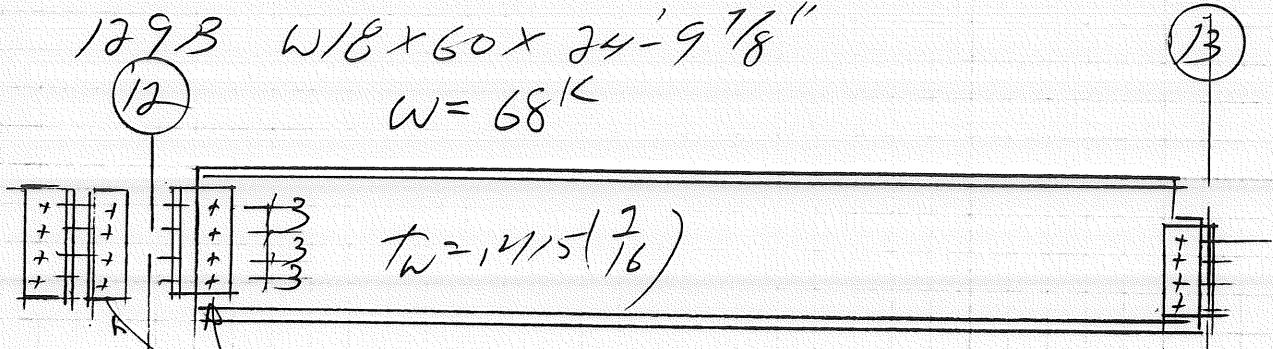 129B W18 x 60 x 24'-9 7/8"
12
13
W = 68K
3
3
3
tw = .415 (7/16)